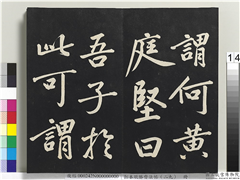 謂何黃
庭堅曰
吾子於
此可謂